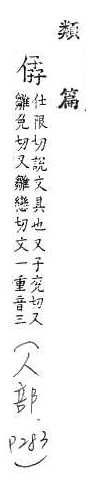 類篇
仕限切說文具也又子兖切又
雛免切又雛戀切文一重音三
(人部. P283)